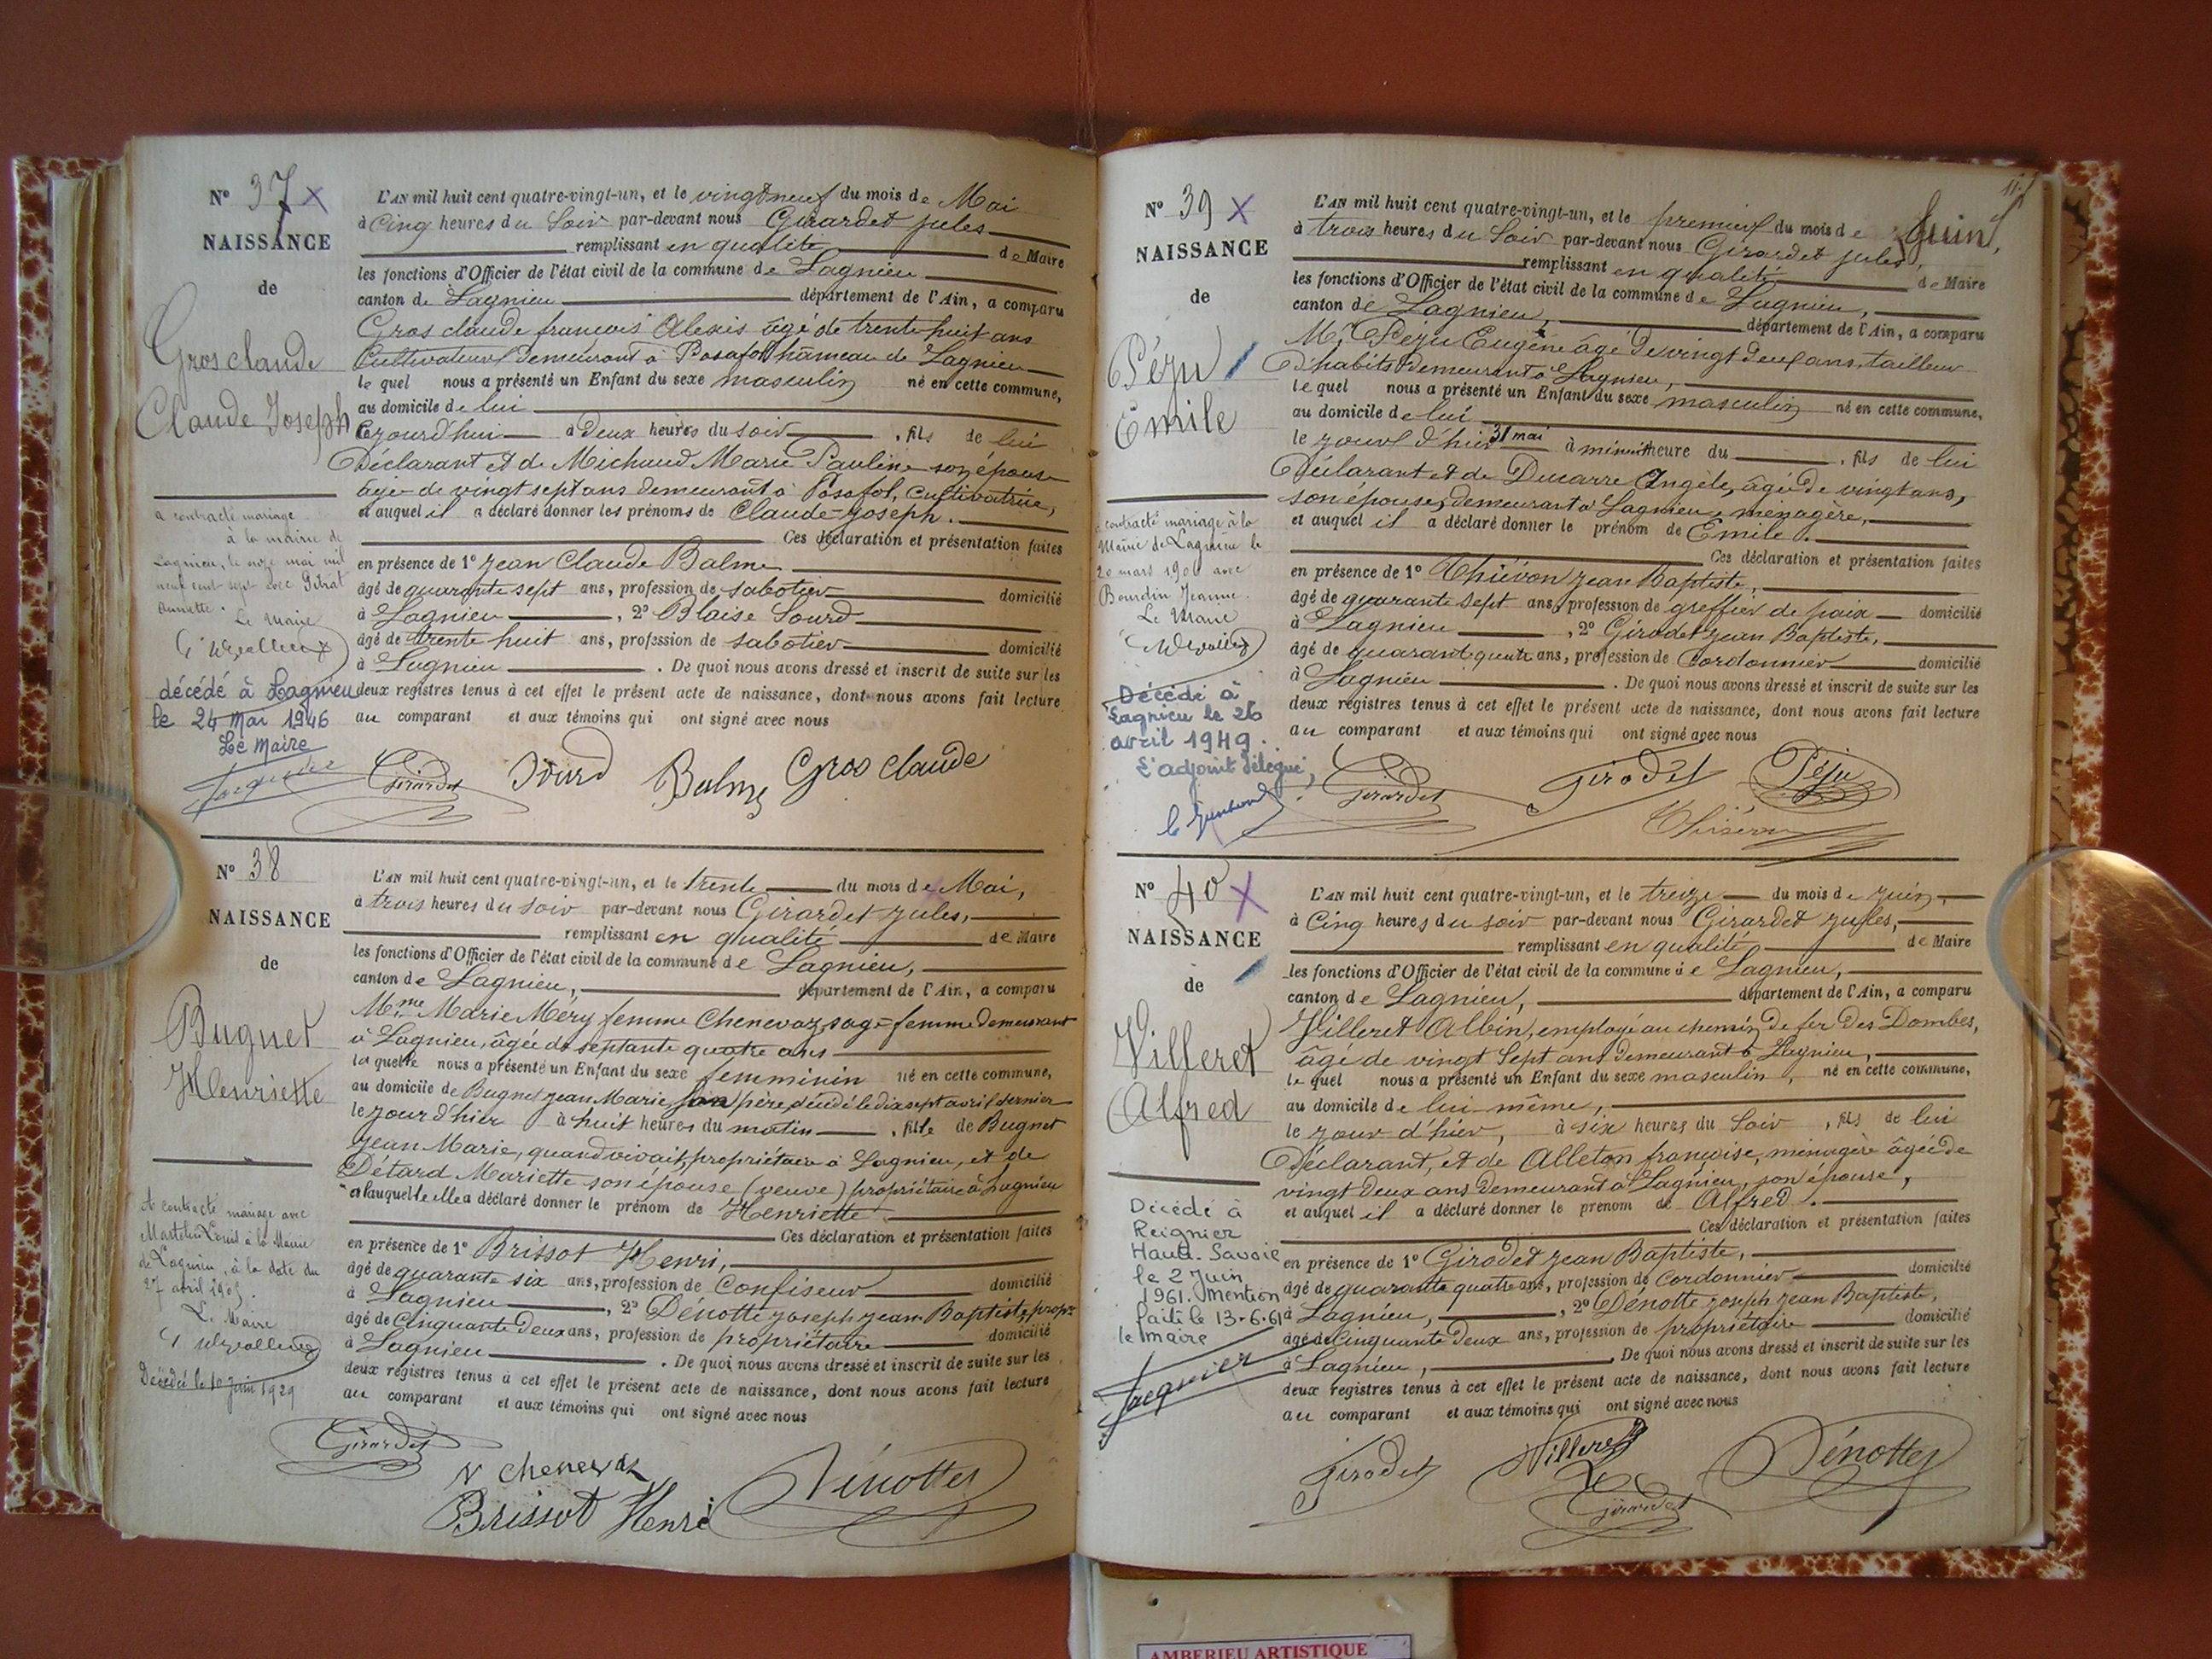 N° 37 X
NAISSANCE
de
Grosclaude
Claude Joseph
a contracté mariage
à la mairie de
Lagnieu, le onze mai mil
neuf cent sept avec
Annette.
Le Maire
décédé à Lagnieu
le 24 Mai 1946
Le Maire
L'AN mil huit cent quatre-vingt-un, et le vingt neuf du mois de Mai
à Cinq heures du Soir par-devant nous Girardet jules
remplissant en qualité de Maire
les fonctions d'Officier de l'état civil de la commune de Lagnieu
canton de Lagnieu département de l'Ain, a comparu
Gros claude françois Alexis âgé de trente huit ans
Cultivateur demeurant à Posafol hâmeau de Lagnieu
le quel nous a présenté un Enfant du sexe masculin né en cette commune,
au domicile de lui
Cejourd'hui à deux heures du soir, fils de lui
Déclarant et de Michaud Marie Pauline son épouse
âgée de vingt sept ans demeurant à Posafol, Cultivatrice,
et auquel il a déclaré donner les prénoms de Claude-Joseph.
Ces déclaration et présentation faites
en présence de 1° Jean Claude Balme
âgé de quarante sept ans, profession de sabotier domicilié
à Lagnieu, 2° Blaise Sourd
âgé de trente huit ans, profession de sabotier domicilié
à Lagnieu. De quoi nous avons dressé et inscrit de suite sur les
deux registres tenus à cet effet le présent acte de naissance, dont nous avons fait lecture
au comparant et aux témoins qui ont signé avec nous
Girardet Sourd Balme Gros claude
N° 38
NAISSANCE
de
Bugnet
Henriette
A contracté mariage avec
Martelin Louis à la Mairie
de Lagnieu, à la date du
27 avril
Le Maire
Décédée le 10 juin 1929
L'AN mil huit cent quatre-vingt-un, et le trente du mois de Mai,
à trois heures du soir par-devant nous Girardet jules,
remplissant en qualité de Maire
les fonctions d'Officier de l'état civil de la commune de Lagnieu,
canton de Lagnieu, département de l'Ain, a comparu
Mme Marie Méry femme Chenevaz, sage-femme demeurant
à Lagnieu, âgée de septante quatre ans
la quelle nous a présenté un Enfant du sexe femminin né en cette commune,
au domicile de Bugnet Jean Marie son père décédé le dix sept avril dernier
le jour d'hier à huit heures du matin, fille de Bugnet
Jean Marie, quand vivait, propriétaire à Lagnieu, et de
Détard Mariette son épouse (veuve) propriétaire à Lagnieu
et auquelle elle a déclaré donner le prénom de Henriette
Ces déclaration et présentation faites
en présence de 1° Brissot Henri,
âgé de quarante six ans, profession de Confiseur domicilié
à Lagnieu, 2° Dénotte joseph jean Baptiste, propre
âgé de Cinquante deux ans, profession de propriétaire domicilié
à Lagnieu. De quoi nous avons dressé et inscrit de suite sur les
deux registres tenus à cet effet le présent acte de naissance, dont nous avons fait lecture
au comparant et aux témoins qui ont signé avec nous
Girardet
Brissot Henri Dénotte
N° 39 X
NAISSANCE
de
Péju
Emile
contracté mariage à la
Mairie de Lagnieu le
20 mars avec
Bourdin Jeanne.
Le Maire
Décédé à
Lagnieu le 26
avril 1949.
L'adjoint délégué,
L'AN mil huit cent quatre-vingt-un, et le premier du mois de Juin,
à trois heures du Soir par-devant nous Girardet jules,
remplissant en qualité de Maire
les fonctions d'Officier de l'état civil de la commune de Lagnieu,
canton de Lagnieu, département de l'Ain, a comparu
Mr Péju Eugène âgé de vingt deux ans, tailleur
D'habits demeurant à Lagnieu,
le quel nous a présenté un Enfant du sexe masculin né en cette commune,
au domicile de lui
le jour d'hier 31 mai à minuit heure du, fils de lui
Déclarant et de Ducarre Angèle, âgée de vingt ans,
son épouse, demeurant à Lagnieu, menagère,
et auquel il a déclaré donner le prénom de Emile.
Ces déclaration et présentation faites
en présence de 1° Thiévon Jean Baptiste,
âgé de quarante sept ans, profession de greffier de paix domicilié
à Lagnieu, 2° Girodet Jean Baptiste,
âgé de quarante quatre ans, profession de Cordonnier domicilié
à Lagnieu. De quoi nous avons dressé et inscrit de suite sur les
deux registres tenus à cet effet le présent acte de naissance, dont nous avons fait lecture
au comparant et aux témoins qui ont signé avec nous
Girardet Girodet Péju
N° 40 X
NAISSANCE
de
Villeret
Alfred
Décédé à
Reignier
Haute-Savoie
le 2 Juin
1961. Mention
faite le 13-6-61
le maire
L'AN mil huit cent quatre-vingt-un, et le treize du mois de juin,
à Cinq heures du soir par-devant nous Girardet jules,
remplissant en qualité de Maire
les fonctions d'Officier de l'état civil de la commune de Lagnieu,
canton de Lagnieu, département de l'Ain, a comparu
Villeret Albin, employé au chemin de fer des Dombes,
âgé de vingt Sept ans demeurant à Lagnieu,
le quel nous a présenté un Enfant du sexe masculin, né en cette commune,
au domicile de lui-même,
le jour d'hier, à six heures du Soir, fils de lui
Déclarant, et de Alleton françoise, ménagère âgée de
vingt deux ans demeurant à Lagnieu, son épouse,
et auquel il a déclaré donner le prénom de Alfred.
Ces déclaration et présentation faites
en présence de 1° Girodet Jean Baptiste,
âgé de quarante quatre ans, profession de Cordonnier domicilié
à Lagnieu, 2° Dénotte joseph jean Baptiste,
âgé de Cinquante deux ans, profession de propriétaire domicilié
à Lagnieu, De quoi nous avons dressé et inscrit de suite sur les
deux registres tenus à cet effet le présent acte de naissance, dont nous avons fait lecture
au comparant et aux témoins qui ont signé avec nous
Girodet Villeret Dénotte
Girardet
AMBERIEU ARTISTIQUE